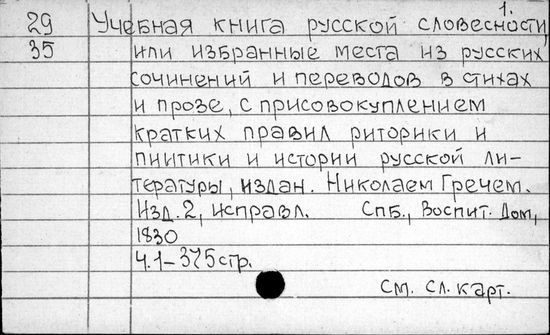 1.
29 Учебная книга русской словесности,
35 или избранные места из русских
сочинений и переводов в стихах
и прозе, с присовокуплением
кратких правил риторики и
пиитики и истории русской ли-
тературы, издан. Николаем Гречем.
Изд. 2, исправл. Спб., Воспит. Дом,
1830
Ч.1-375стр.
См. сл. карт.